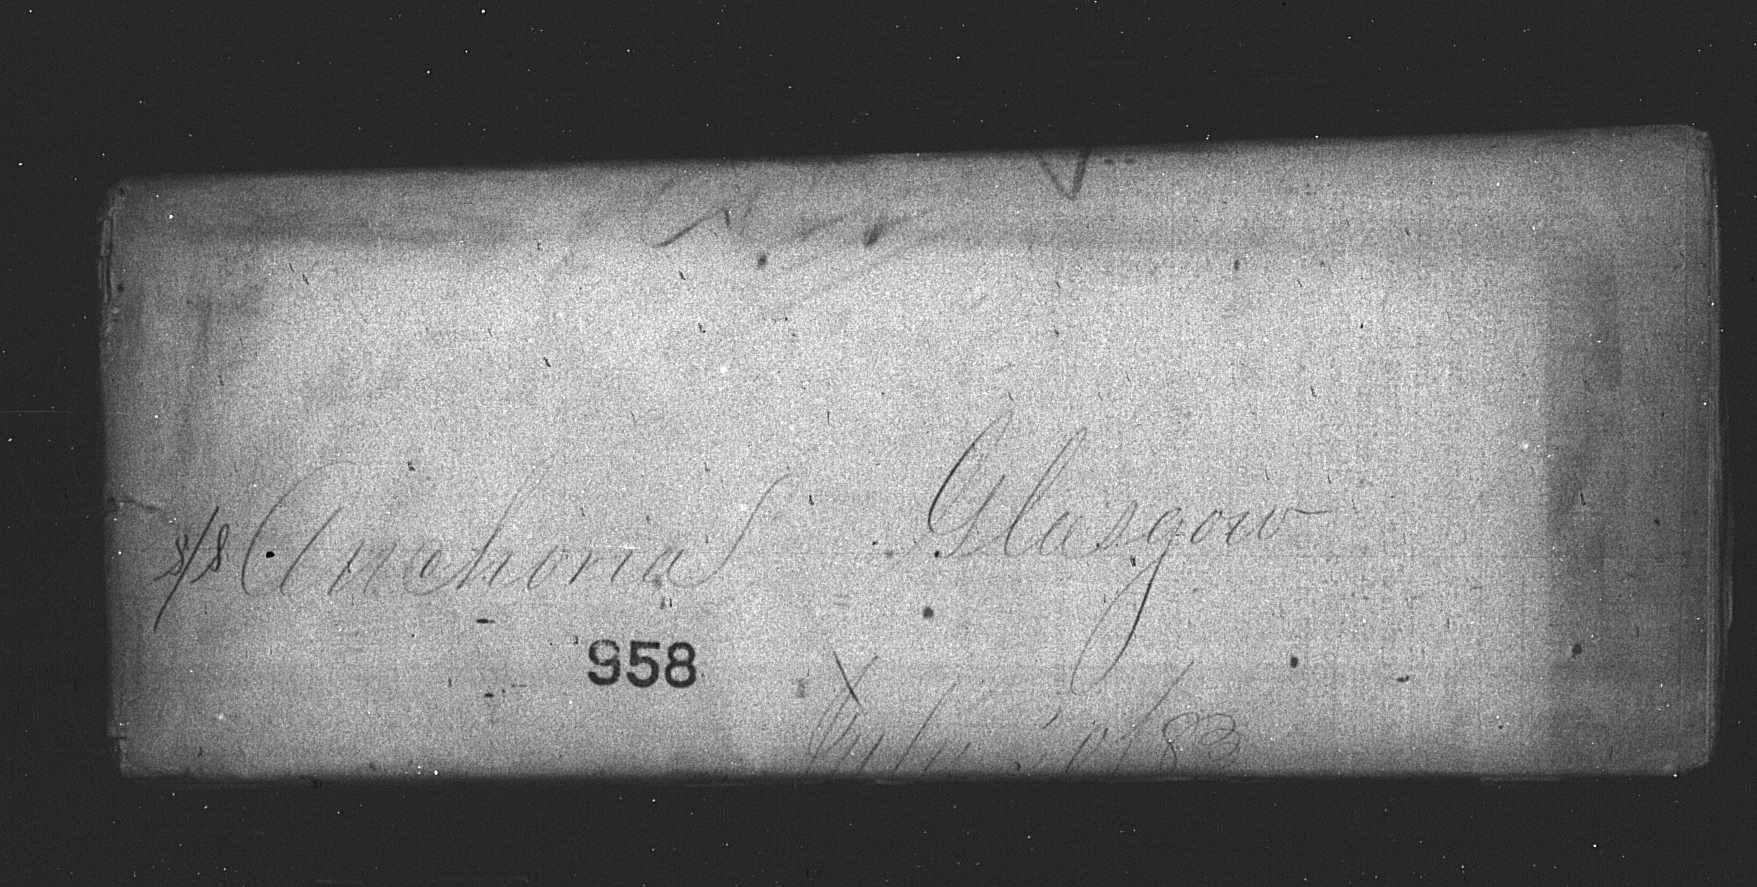 s/s Anchoria Glasgow
958
July 10/83